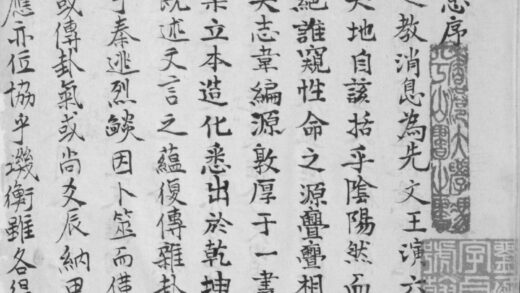 息序
之教消息為先文王演六
天地自該括乎陰陽然而
絕誰窺性命之源亹亹相
天志韋編源敦厚于一書
策立本造化悉出於乾坤
既述文言之蘊復傳雜卦
于秦逃烈燄因卜筮而僅
或傳卦氣或尚爻辰納甲
應亦位協乎璣衡雖各得